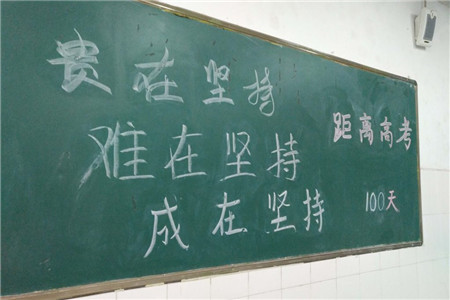 贵在坚持
难在坚持
成在坚持
距离高考
100天